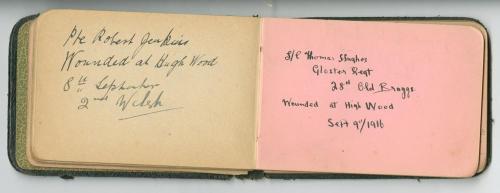 Pte Robert Jenkins
Wounded at High Wood
8th September
2nd Welsh
Thomas Hughes
Gloster Regt
28th Old Braggs
Wounded at High Wood
Sept 9th/1916